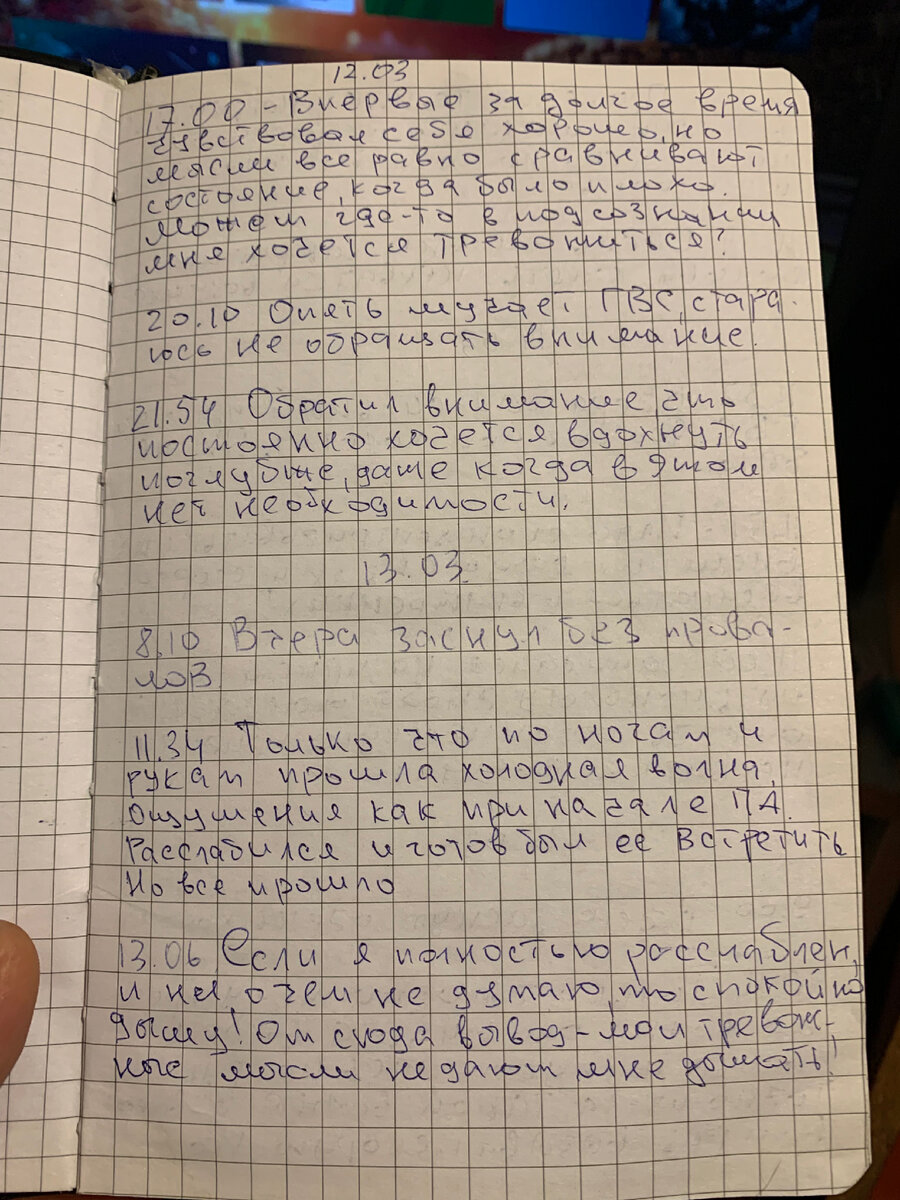 12.03
17.00 - Впервые за долгое время
чувствовал себя хорошо, но
мысли все равно сравнивают
состояние, когда было плохо.
Может где-то в подсознании
мне хочется тревожиться?
20.10 Опять мучает ПВС, стара-
юсь не обращать внимание.
21.54 Обратил внимание, что
постоянно хочется вдохнуть
поглубже, даже когда в этом
нет необходимости.
13.03
8.10 Вчера заснул без прова-
лов
11.34 Только что по ногам и
рукам прошла холодная волна,
ощущения как при начале ПА.
Расслабился и готов был ее встретить
Но все прошло
13.06 Если я полностью расслаблен,
и ни о чем не думаю, то спокойно
дышу! От сюда вывод - мои тревож-
ные мысли не дают мне дышать!